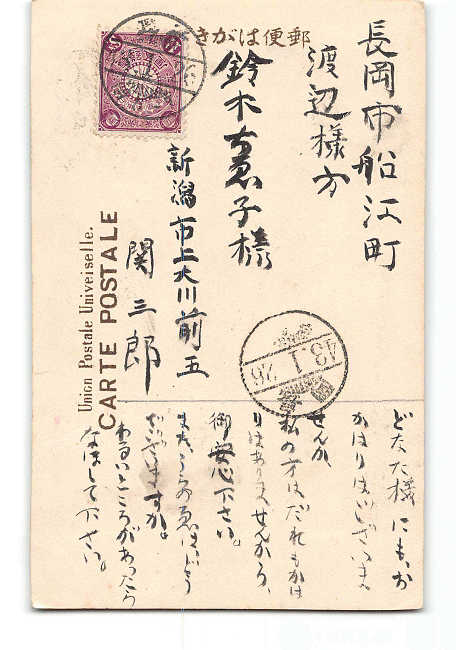 きがは便郵
長岡市船江町
渡辺様方
鈴木ちゑ子様
新潟市上大川前五
関三郎
Union Postale Universelle.
CARTE POSTALE
43.1.26
どなた様にもおか
かはりはございま
せんか。
私の方はだれもかは
りはありませんから、
御安心下さい。
またこちらのゑはどう
でございますか。
わるいところがあったら
なほして下さい。